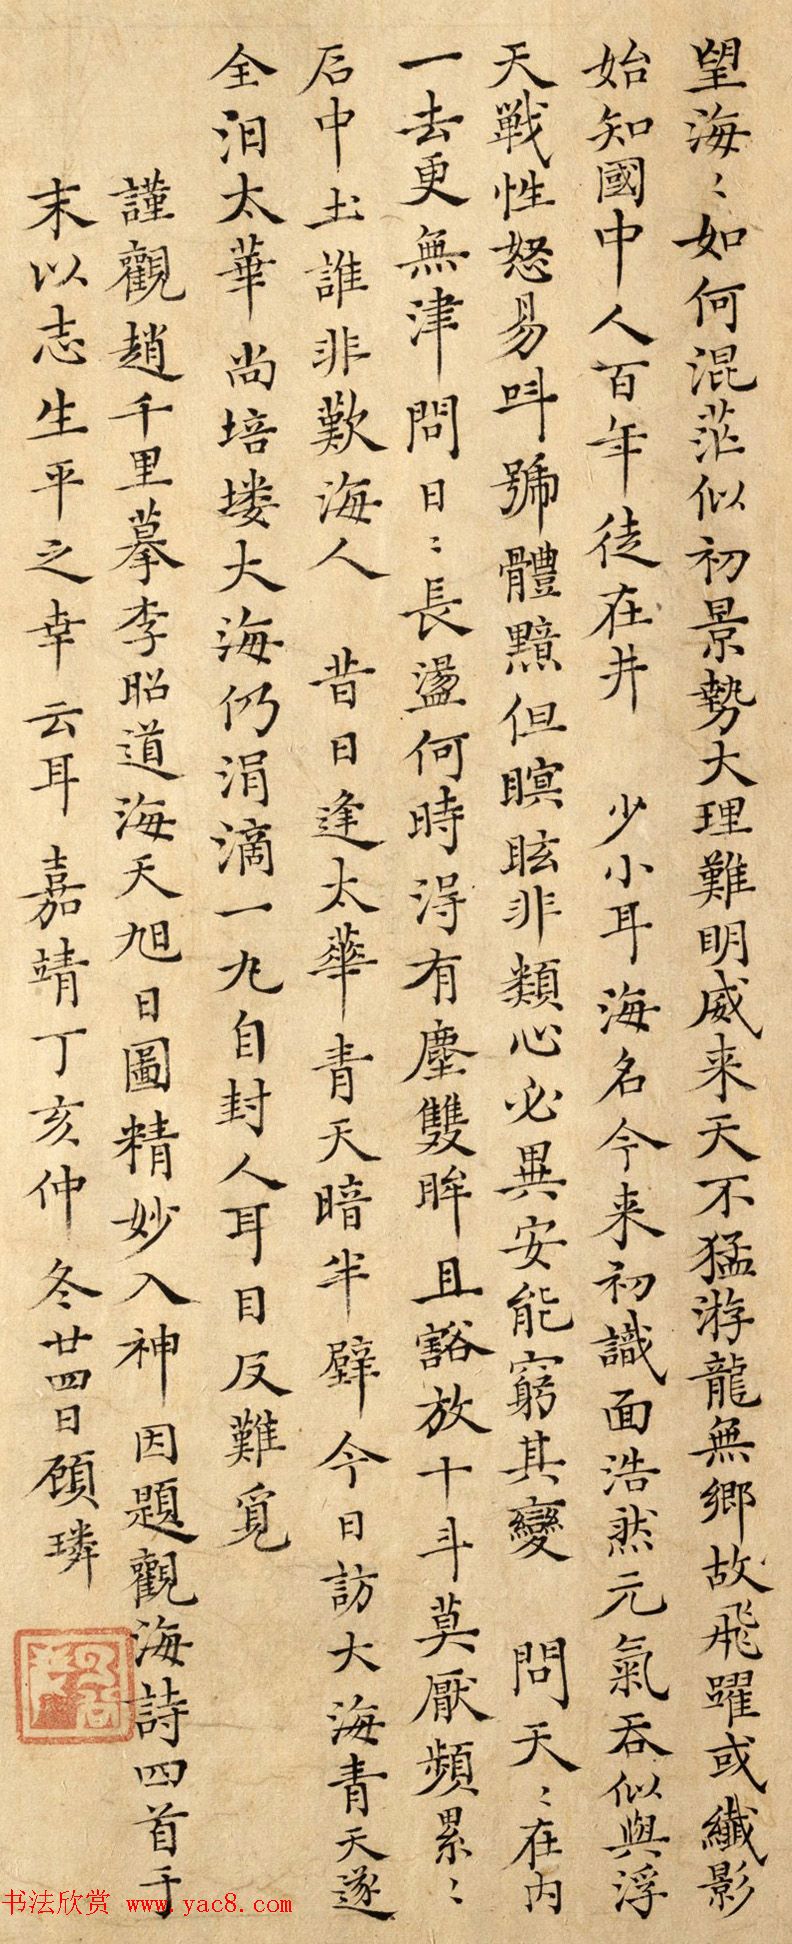 望海〻如何混茫似初景勢大理難明威来天不猛游龍無鄉故飛躍或纖影
始知國中人百年徒在井 少小耳海名今来初識面浩然元氣吞似與浮
天戰性怒易呌號體黯但瞑眩非類心必異安能窮其變 問天〻在内
一去更無津問日〻長盪何時淂有塵雙眸且豁放十斗莫厭頻累〻
后中土誰非歎海人 昔日逢太華青天暗半壁今日訪大海青天遂
全汨太華尚培塿大海仍涓滴一丸自封人耳目反難覓
謹觀趙千里摹李昭道海天旭日圖精妙入神因題觀海詩四首于
末以志生平之幸云耳嘉靖丁亥仲冬廿四日顾璘
书法欣赏 www.yac8.com